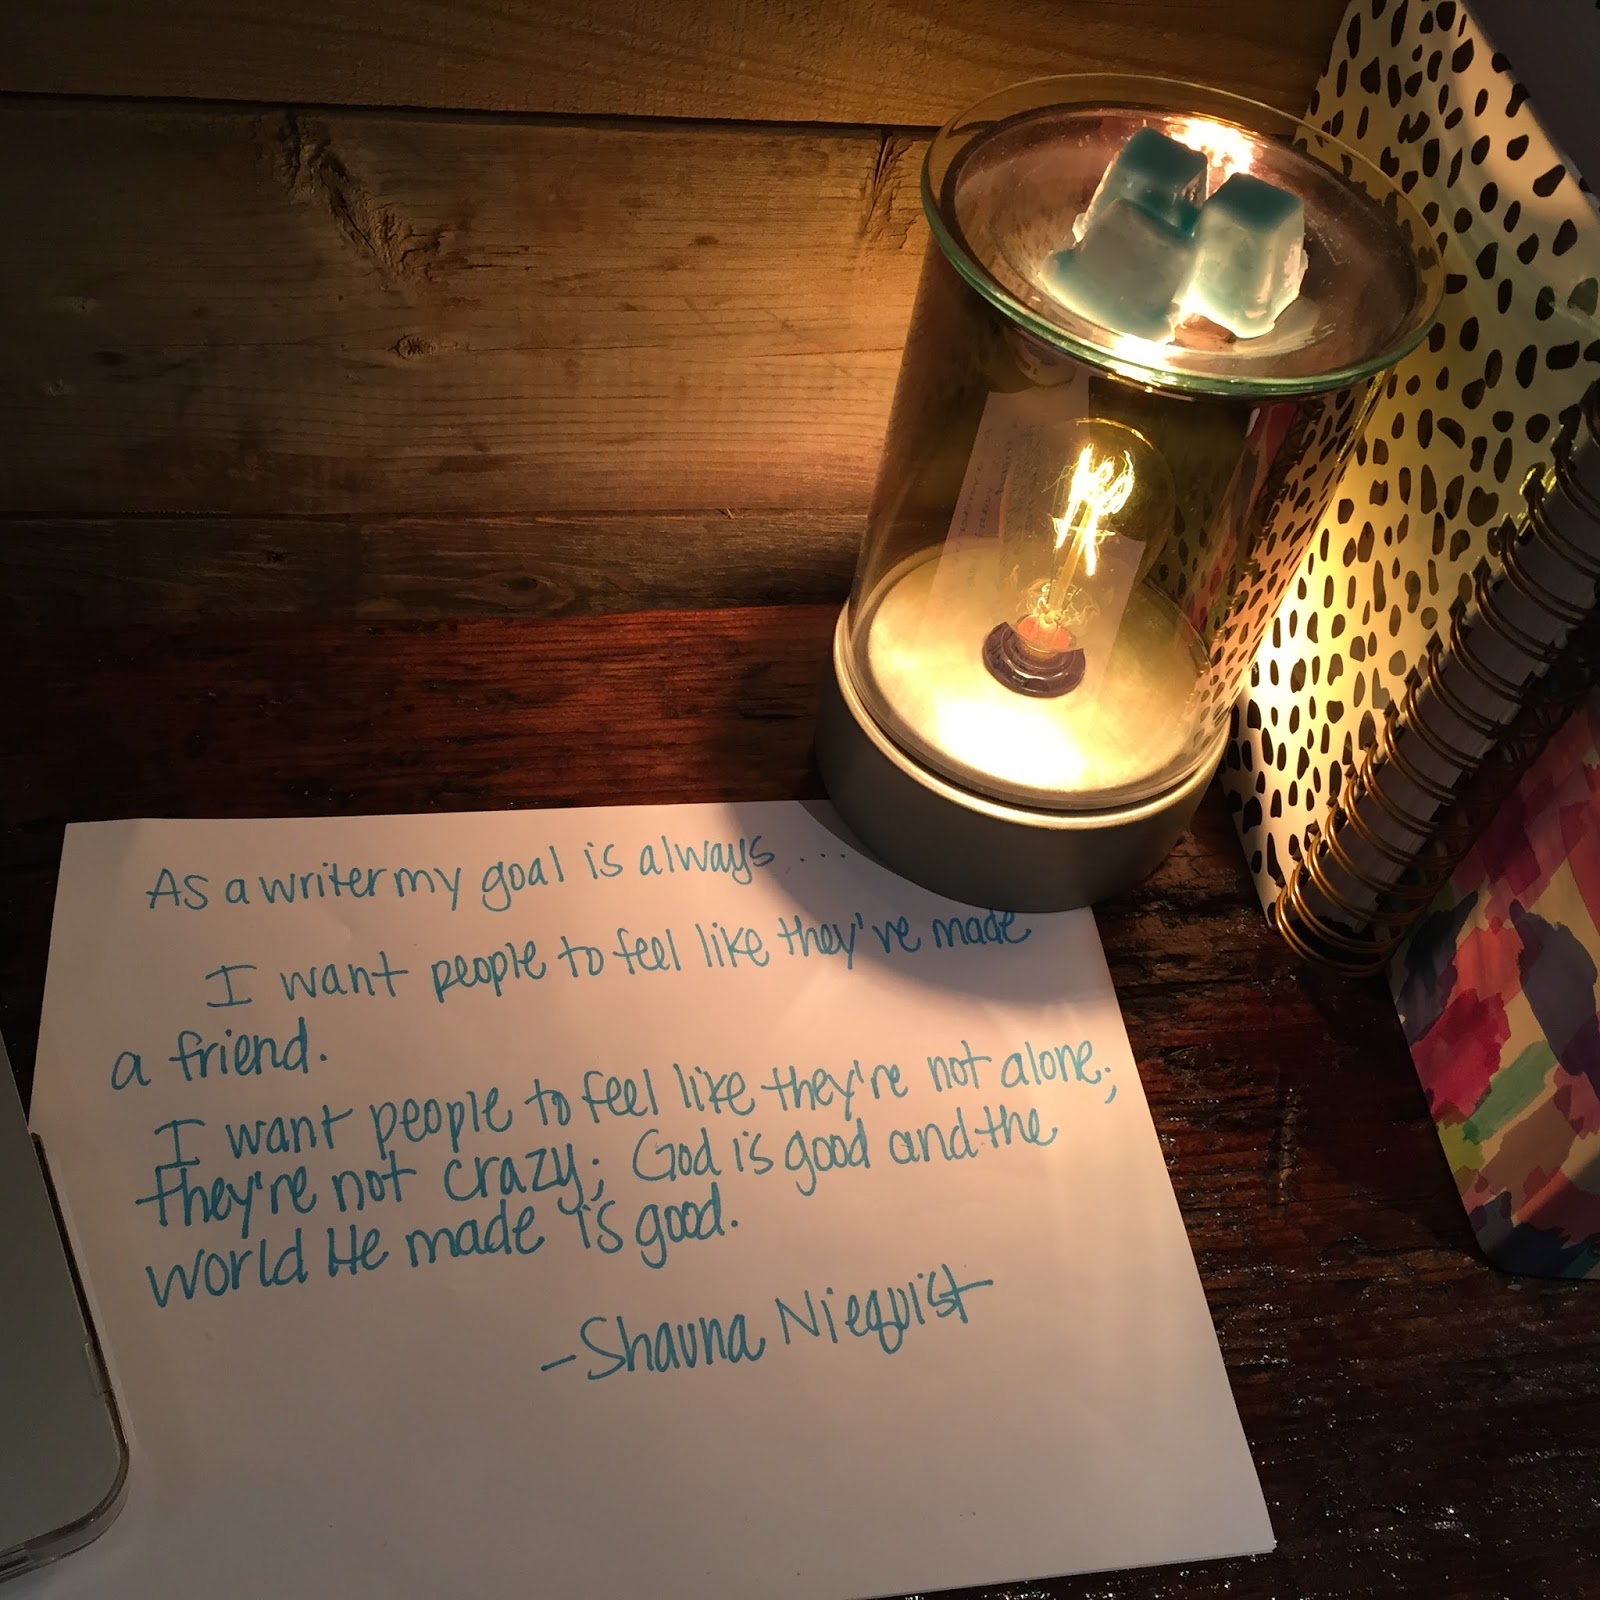 As a writer my goal is always...
I want people to feel like they've made
a friend.
I want people to feel like they're not alone;
they're not crazy; God is good and the
world He made is good.
-Shauna Niequist